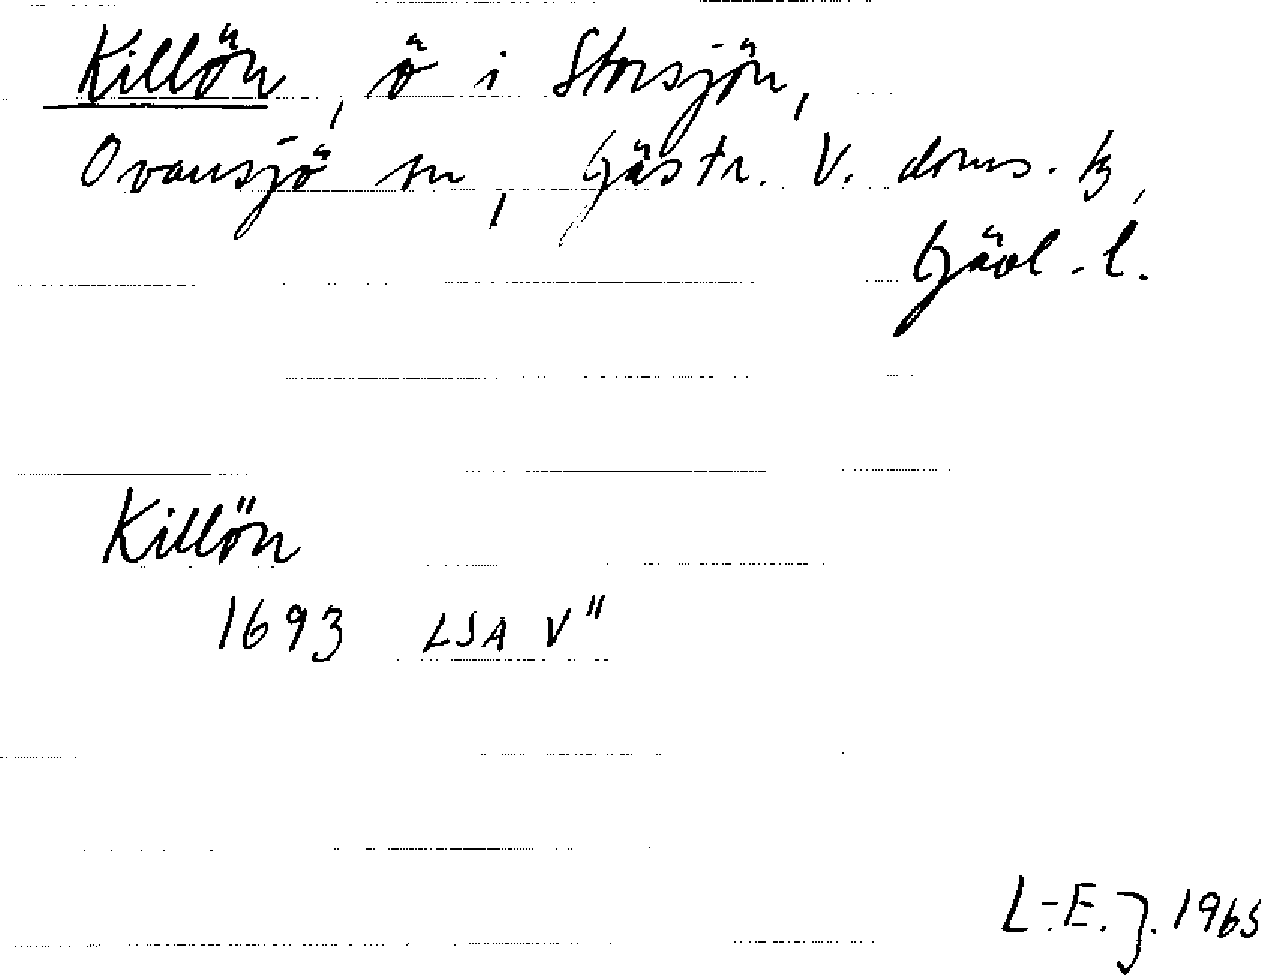 Killön, ö i Storsjön,
Ovansjö sn, Gästr. V. doms. tg,
Gävl. l.
Killön
1693 LSA V"
L-E. J. 1965